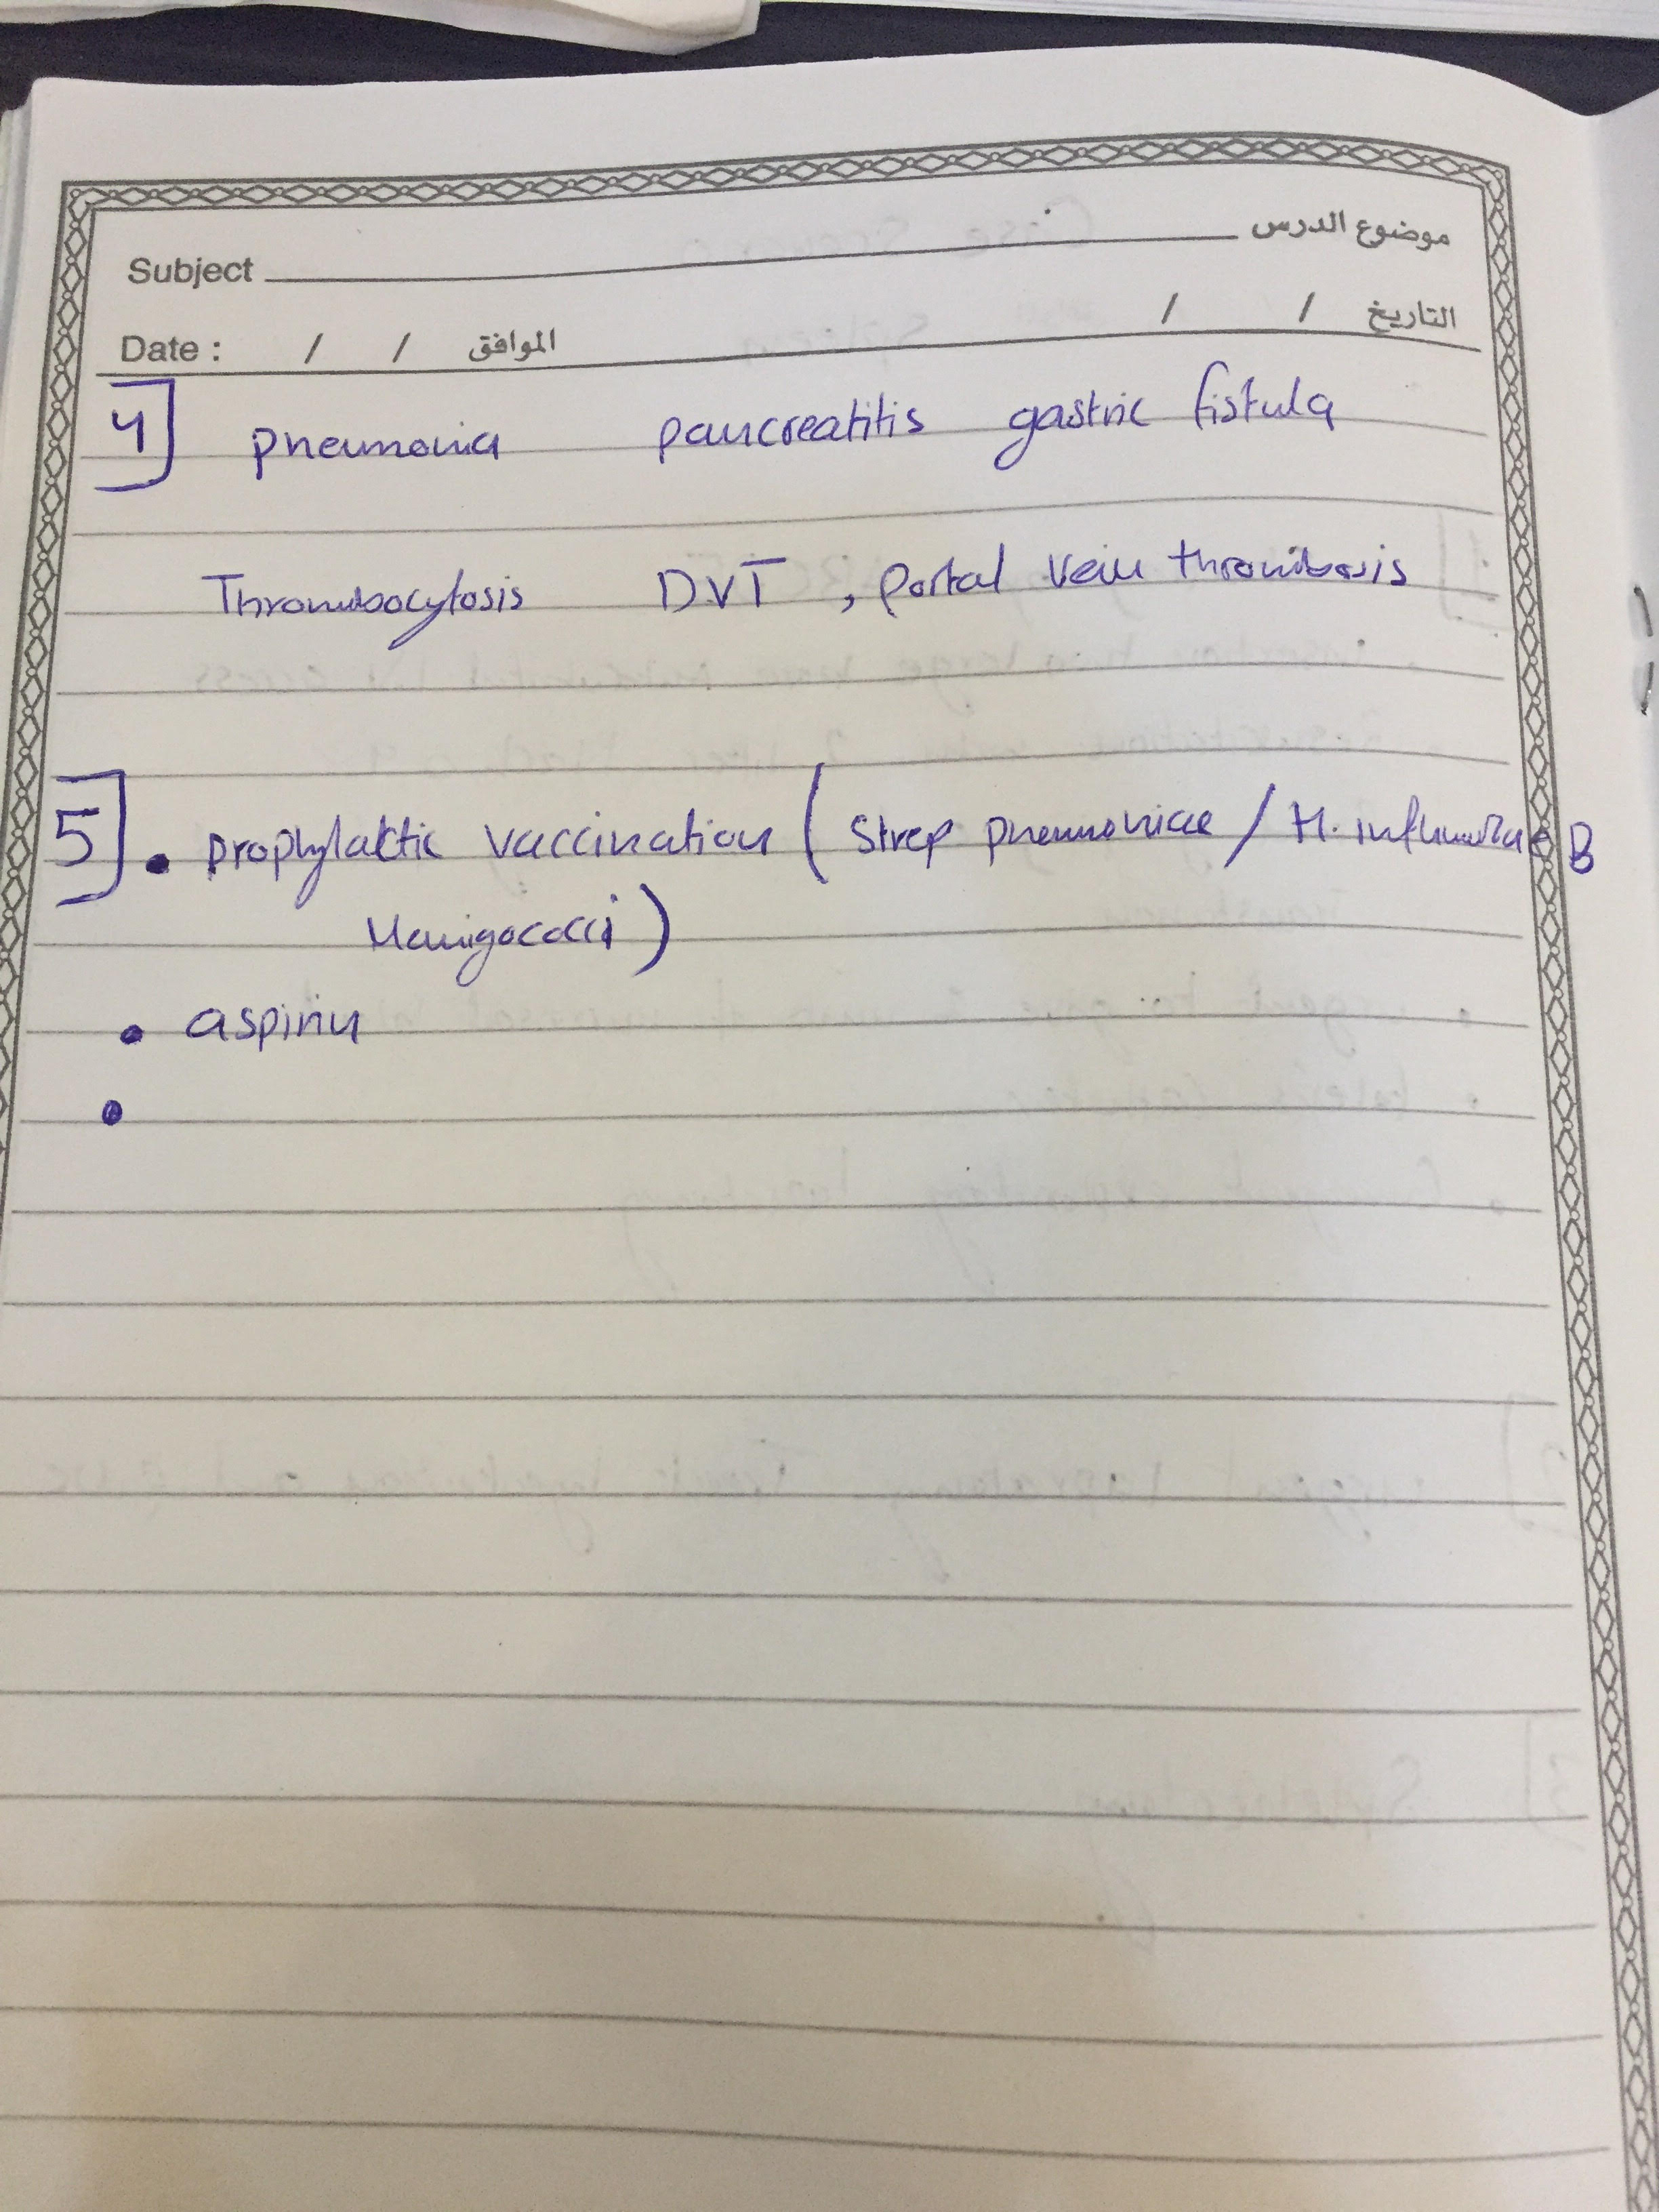 موضوع الدرس
Subject
التاريخ / /
Date : / / الموافق
4] pneumonia pancreatitis gastric fistula
Thrombocytosis DVT , portal vein thrombosis
5] • prophylactic vaccination ( strep pneumoniae / H. influenzae B
Menigococci )
• aspirin
•